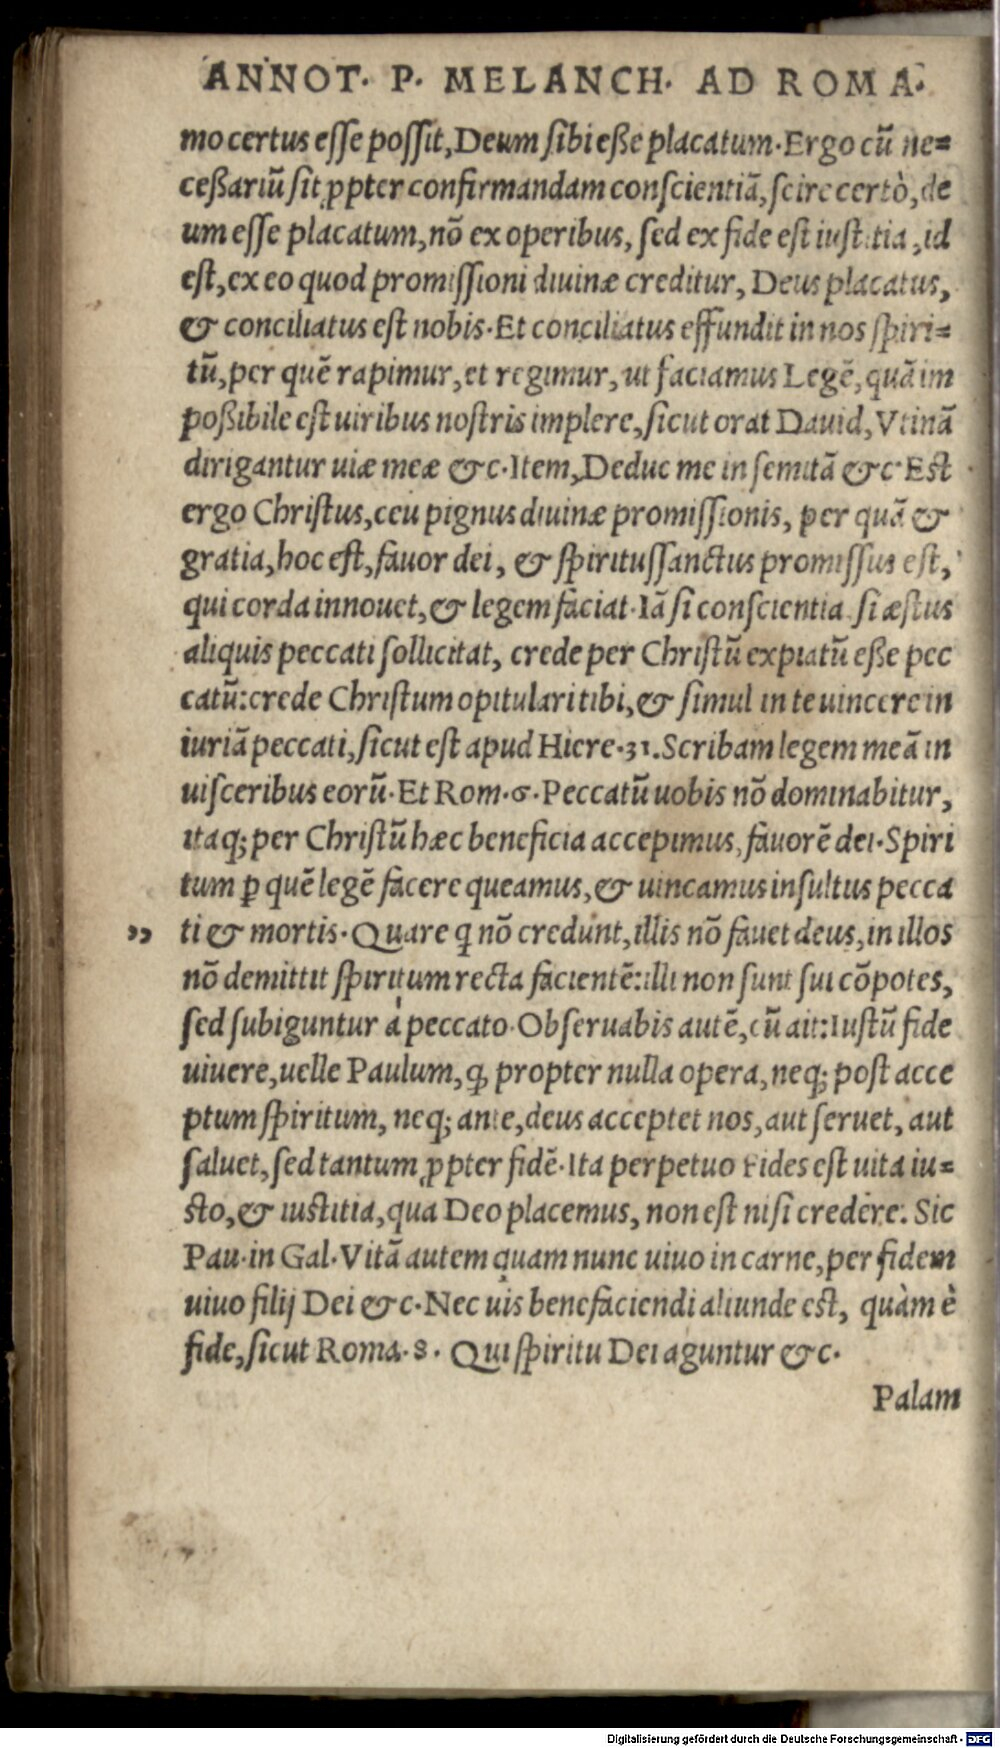 ANNOT. P. MELANCH. AD ROMA.
mo certus esse possit, Deum sibi eße placatum. Ergo cũ ne=
ceßariũ sit ꝓpter confirmandam conscientiã, scire certò, de
um esse placatum, nõ ex operibus, sed ex fide est iustitia, id
est, ex eo quod promissioni diuinæ creditur, Deus placatus,
& conciliatus est nobis. Et conciliatus effundit in nos spiri=
tũ, per quẽ rapimur, et regimur, ut faciamus Legẽ, quã im
poßibile est uiribus nostris implere, sicut orat Dauid, Vtinã
dirigantur uiæ meæ &c. Item, Deduc me in semitã &c. Est
ergo Christus, ceu pignus diuinæ promissionis, per quã &
gratia, hoc est, fauor dei, & spiritussanctus promissus est,
qui corda innouet, & legem faciat. Iã si conscientia si æstus
aliquis peccati sollicitat, crede per Christũ expiatũ eße pec
catũ: crede Christum opitulari tibi, & simul in te uincere in
iuriã peccati, sicut est apud Hiere. 31. Scribam legem meã in
uisceribus eorũ. Et Rom. 6. Peccatũ uobis nõ dominabitur,
itaq; per Christũ hæc beneficia accepimus, fauorẽ dei. Spiri
tum ꝑ quẽ legẽ facere queamus, & uincamus insultus pecca
,, ti & mortis. Quare q̃ nõ credunt, illis nõ fauet deus, in illos
nõ demittit spiritum recta facientẽ: illi non sunt sui cõpotes,
sed subiguntur à peccato. Obseruabis autẽ, cũ ait: Iustũ fide
uiuere, uelle Paulum, ꝙ propter nulla opera, neq; post acce
ptum spiritum, neq; ante, deus acceptet nos, aut seruet, aut
saluet, sed tantum ꝓpter fidẽ. Ita perpetuo Fides est uita iu=
sto, & iustitia, qua Deo placemus, non est nisi credere. Sic
Pau. in Gal. Vitã autem quam nunc uiuo in carne, per fidem
uiuo filij Dei &c. Nec uis benefaciendi aliunde est, quàm è
fide, sicut Roma. 8. Qui spiritu Dei aguntur &c.
Palam
Digitalisierung gefördert durch die Deutsche Forschungsgemeinschaft - DFG